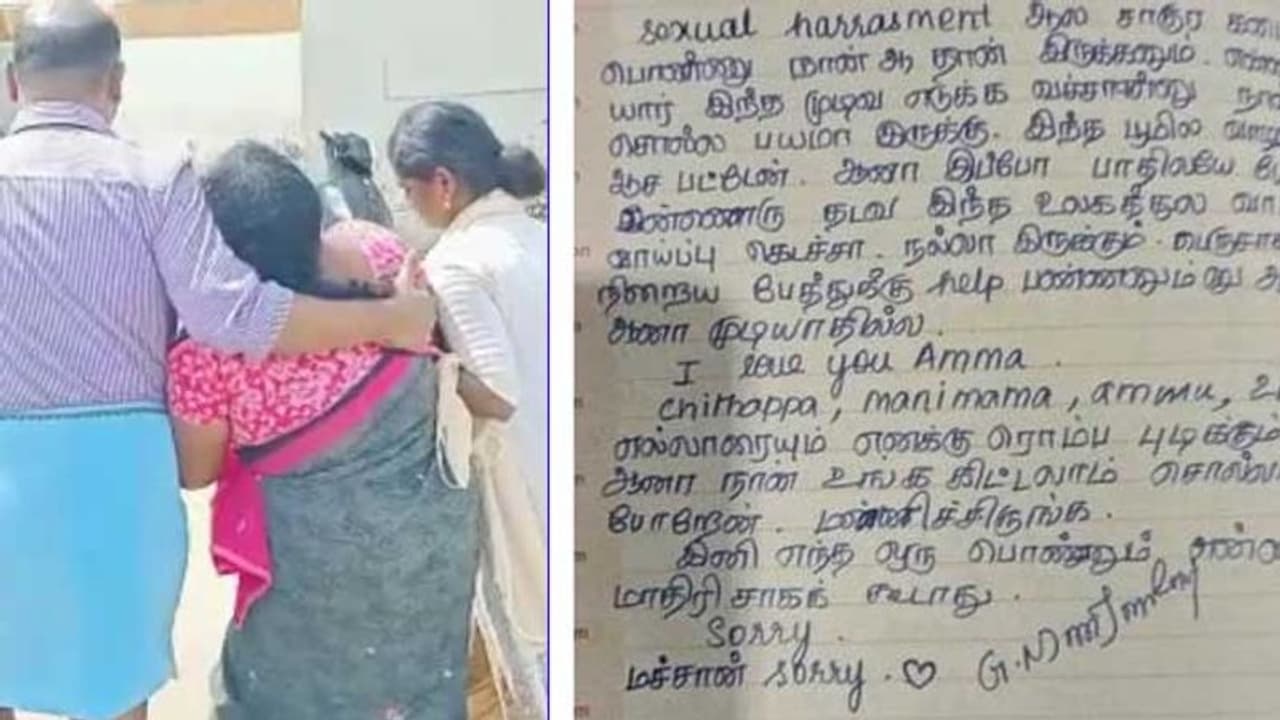 sexual harrasment ஆல சாகுற
பொண்ணு நான் ஆ தான் இருக்கணும்.
யார் இந்த முடிவ எடுக்க வச்சாங்கனு
சொல்ல பயமா இருக்கு. இந்த பூமில
ஆச பட்டேன். ஆனா இப்போ பாதிலயே
இன்னொரு தடவ இந்த உலகத்துல
வாய்ப்பு கெடச்சா. நல்லா இருக்கும்.
நிறைய பேத்துக்கு help பண்ணனும்னு
ஆனா முடியாதில்ல.
I love you Amma.
chithappa, manimama, ammu,
எல்லாரையும் எனக்கு ரொம்ப புடிக்கும்
ஆனா நான் உங்க கிட்டலாம்
போறேன். மன்னிச்சிருங்க.
இனி எந்த ஒரு பொண்ணும்
மாதிரி சாகக் கூடாது.
Sorry.
மச்சான் sorry. ♡